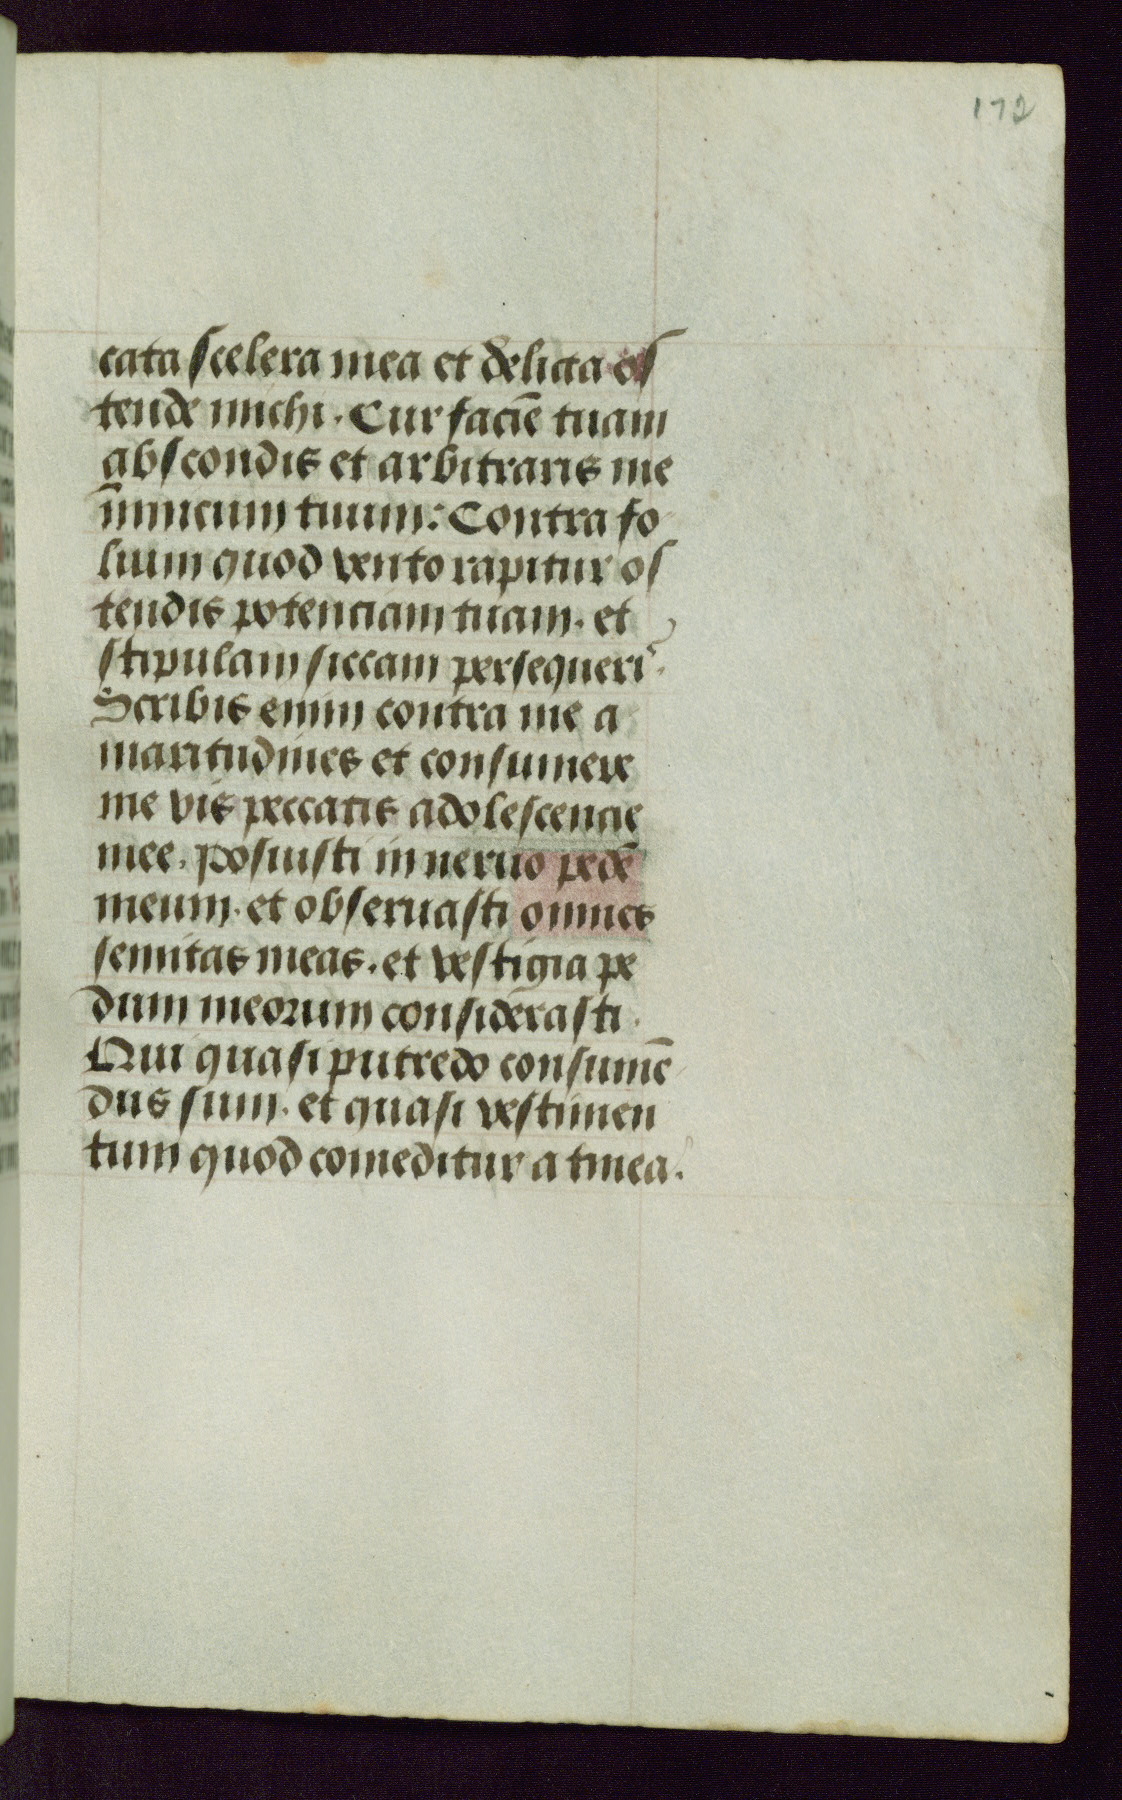 172
cata scelera mea et delicta os
tende michi. Cur faciē tuam
abscondis et arbitraris me
inimicum tuum: Contra fo
lium quod vento rapitur os
tendis potenciam tuam. et
stipulam siccam persequeris.
Scribis enim contra me a
maritudines et consumere
me vis peccatis adolescencie
mee. Posuisti in neruo pedē
meum. et obseruasti omnes
semitas meas. et vestigia pe
dum meorum considerasti.
Qui quasi putredo consumē
dus sum. et quasi vestimen
tum quod comeditur a tinea.